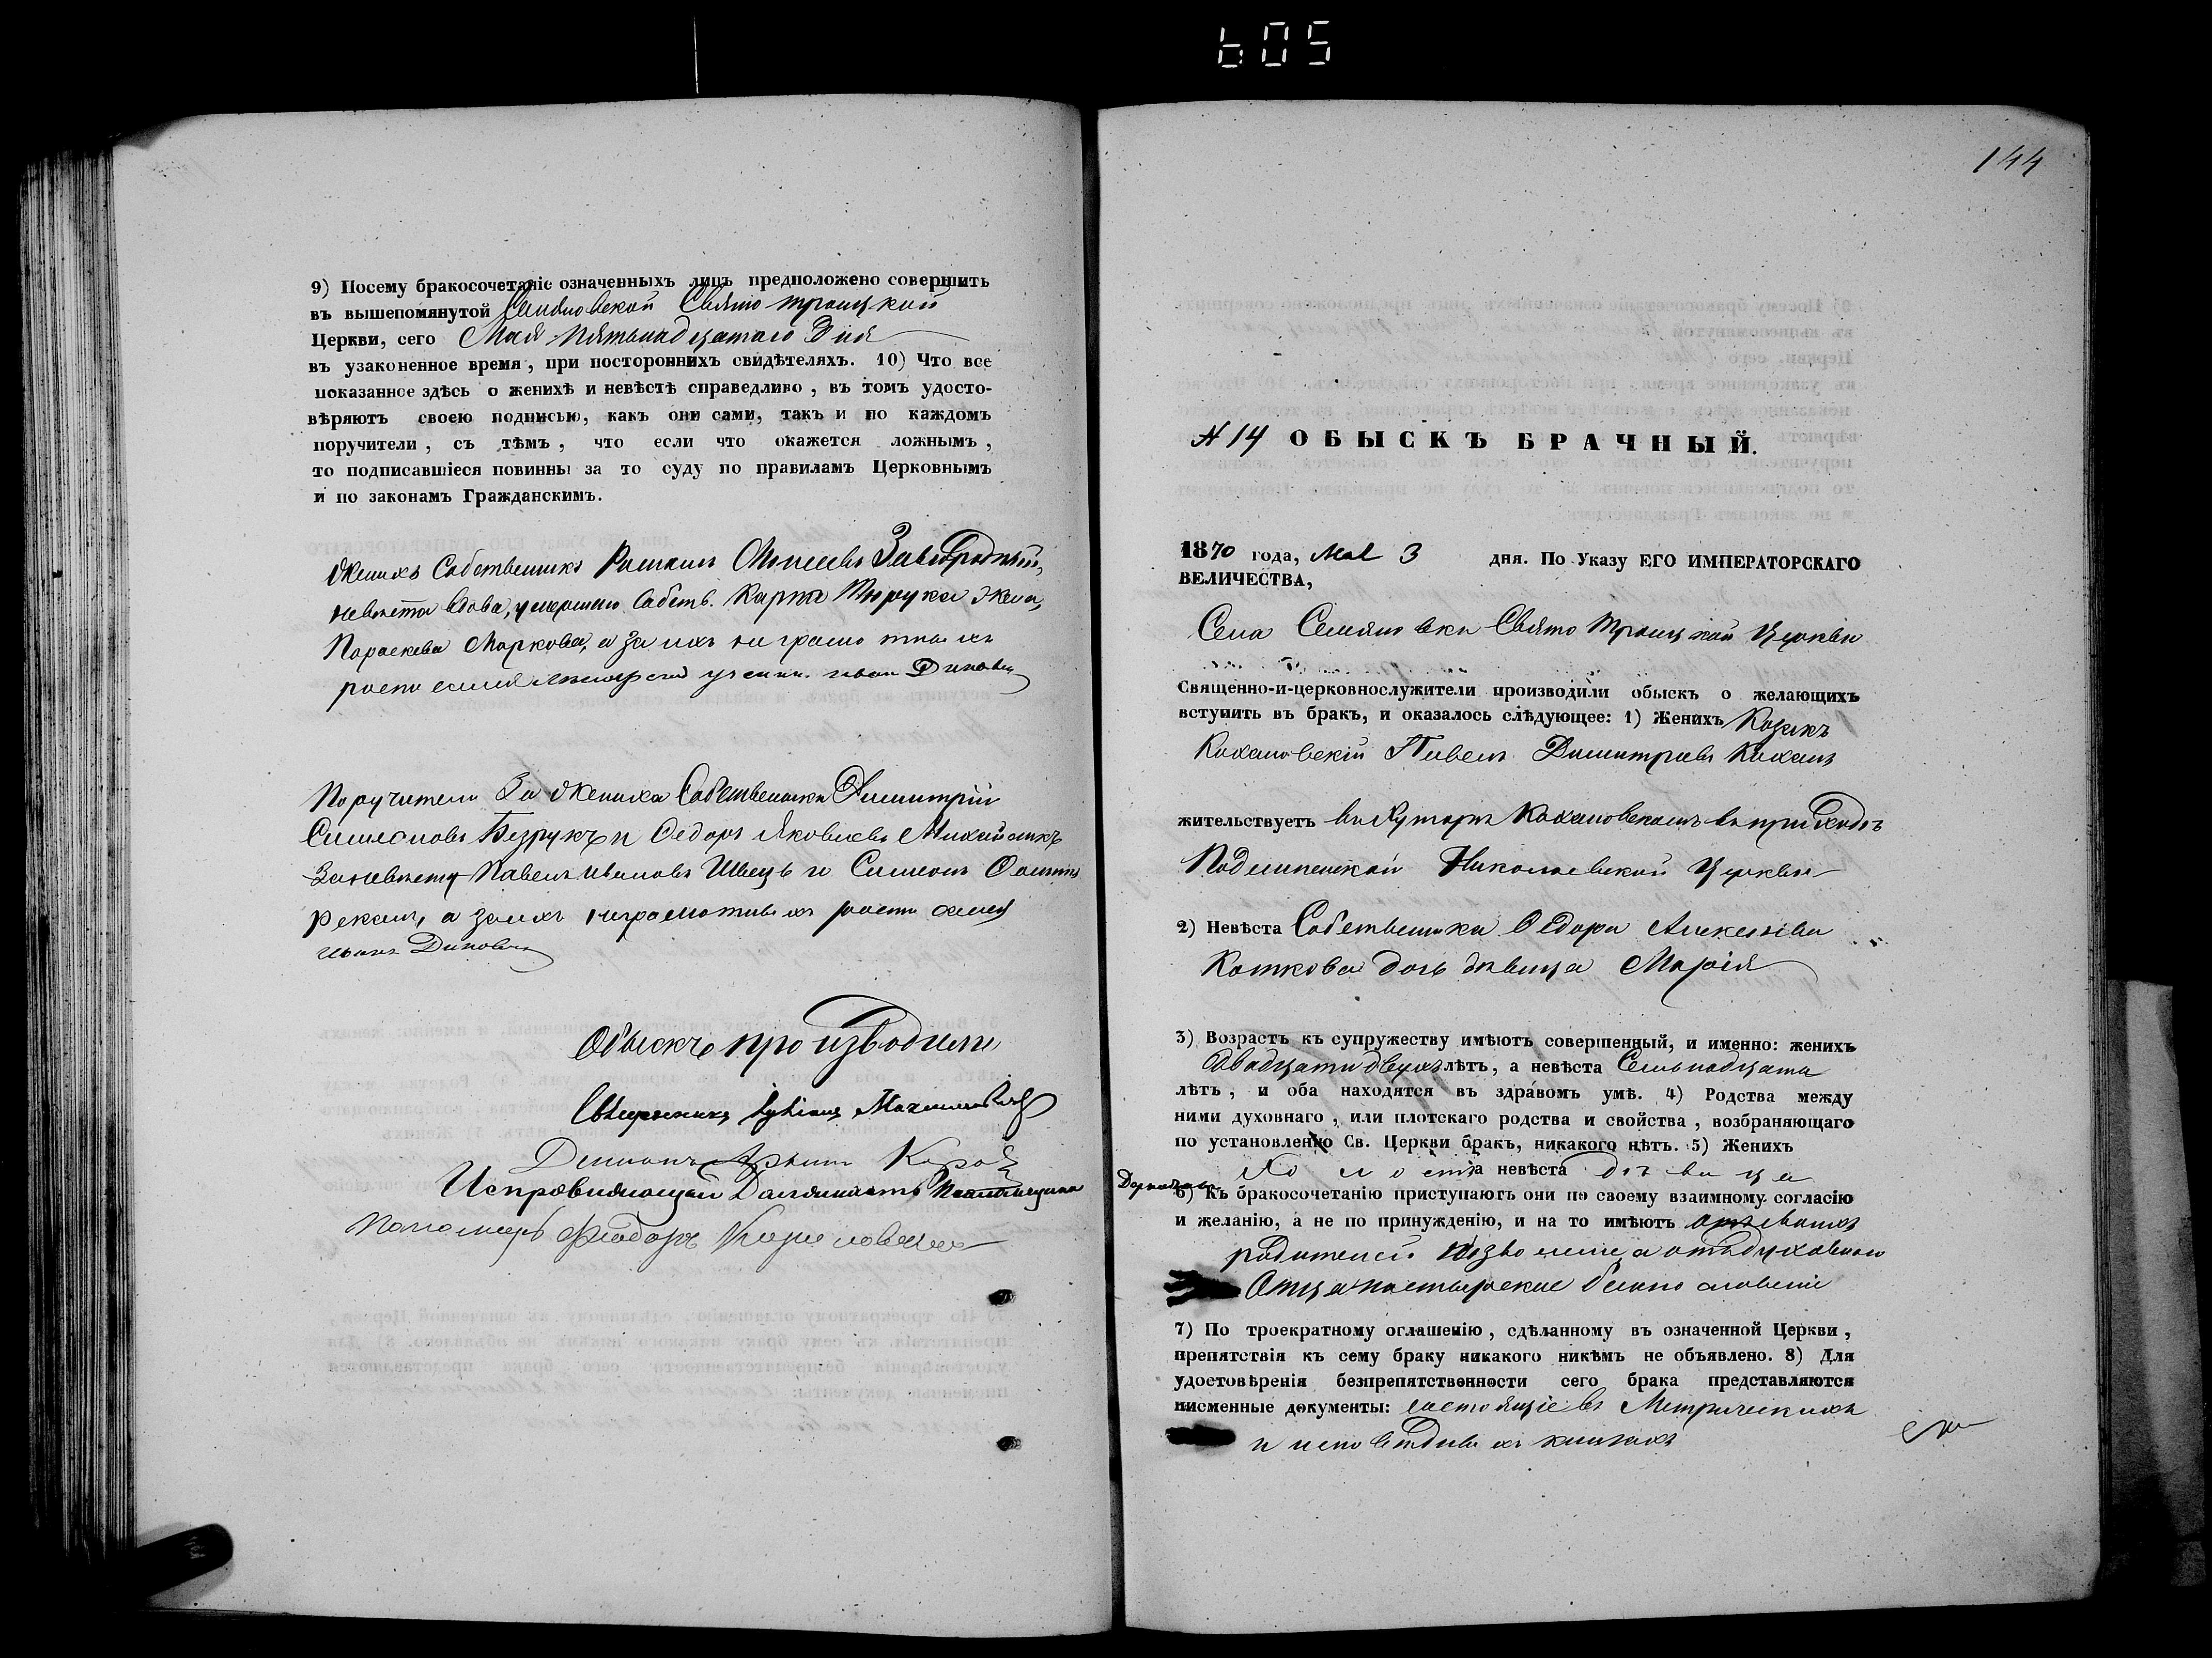 605
9) Посему бракосочетаніе означенныхъ лицъ предположено совершить
въ вышепомянутой Семяновской Свято Троицкой
Церкви, сего Мая Пятьнадцатаго Дня
въ узаконенное время, при постороннихъ свидѣтеляхъ. 10) Что все
показанное здѣсь о женихѣ и невѣстѣ справедливо, въ томъ удосто-
вѣряютъ своею подписью, какъ они сами, такъ и по каждомъ
поручители, съ тѣмъ, что если что окажется ложнымъ,
то подписавшіеся повинны за то суду по правиламъ Церковнымъ
и по законамъ Гражданскимъ.
Женихъ Собственникъ Романъ Моисеевъ Завгородный,
невѣста вдова, умершаго Собств. Карпа жена,
Параскева Маркова, а за ихъ неграмотныхъ
Иванъ
Поручители За Жениха Собственники Димитрій
Симеоновъ Безрукъ и Федоръ Яковлевъ
За невѣсту Павелъ Ивановъ Швецъ и Симеонъ
а за ихъ неграмотныхъ
Иванъ
Обыскъ производили
Священникъ
Исправляющій Должность
Пономарь Фіодоръ
144
№ 14 ОБЫСКЪ БРАЧНЫЙ.
1870 года, Мая 3 дня. По Указу ЕГО ИМПЕРАТОРСКАГО
ВЕЛИЧЕСТВА,
Села Семяновки Свято Троицкой Церкви
Священно-и-церковнослужители производили обыскъ о желающихъ
вступить въ бракъ, и оказалось слѣдующее: 1) Женихъ Козакъ
Кохановскій Павелъ Димитріевъ Коханъ
жительствуетъ въ Хуторѣ Кохановскомъ въ приходѣ
Николаевской Церкви
2) Невѣста Собственника Федора Алексѣева
Коткова дочь дѣвица Марія
3) Возрастъ къ супружеству имѣютъ совершенный, и именно: женихъ
Двадцати двухъ лѣтъ, а невѣста Семьнадцати
лѣтъ, и оба находятся въ здравомъ умѣ. 4) Родства между
ними духовнаго, или плотскаго родства и свойства, возбраняющаго
по установленію Св. Церкви бракъ, никакого нѣтъ. 5) Женихъ
Холостъ а невѣста дѣвица
6) Къ бракосочетанію приступаютъ они по своему взаимному согласію
и желанію, а не по принужденію, и на то имѣютъ
родителей позволеніе, а отъ духовнаго
Отца пастырское благословеніе
7) По троекратному оглашенію, сдѣланному въ означенной Церкви,
препятствія къ сему браку никакого никѣмъ не объявлено. 8) Для
удостовѣренія безпрепятственности сего брака представляются
письменные документы: состоящіе въ Метрическихъ
и исповѣдныхъ книгахъ